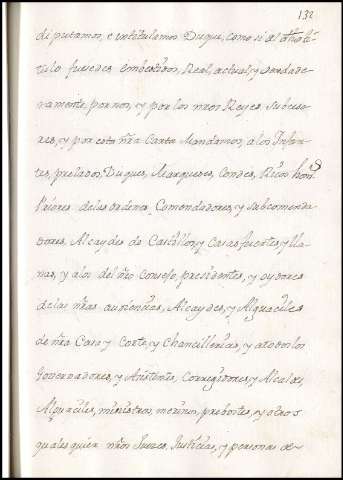 132
diputamos, e intitulamos Duque, como si del dho ti-
tulo fuesedes embestidos, Real, actual, y verdade-
ramente, por nos, y por los nros Reyes subceso-
res, y por esta nra Carta Mandamos, a los Infan-
tes, prelados, Duques, Marqueses, Condes, Ricos hom
Priores de las ordenes, Comendadores, y subcomenda
dores, Alcaydes de Castillos, y Casas fuertes, y lla-
nas, y a los del nro Consejo, presidentes, y oydores
de las nras audiencias, Alcaydes, y Alguaciles
de nra Casa y Corte, y Chancillerias, y a todos los
Governadores, y Asistentes, Corregidores, y Alcaldes,
Alguaciles, ministros, merinos, prebostes, y otros
qualesquier nros Jueces, Justicias, y personas de-